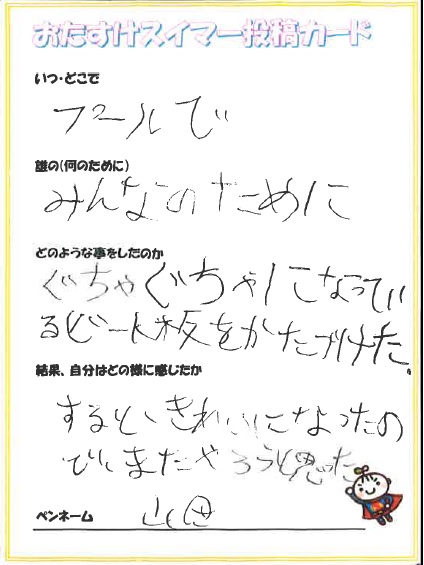 おたすけスイマー投稿カード
いつ・どこで
プールで
誰の(何のために)
みんなのために
どのような事をしたのか
ぐちゃぐちゃになってい
るビート板をかたづけた。
結果、自分はどの様に感じたか
すると、きれいになったの
で、またやろうと思った
ペンネーム